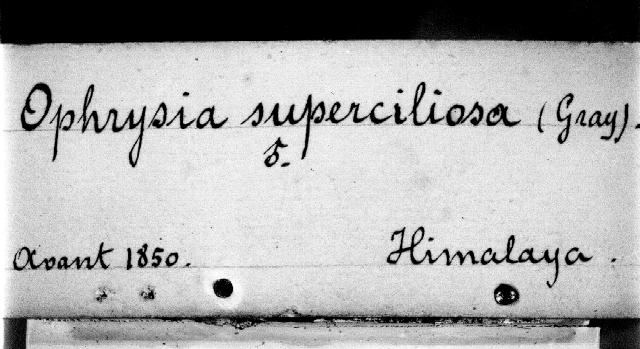 Ophrysia superciliosa (Gray).
5.
Avant 1850. Himalaya.